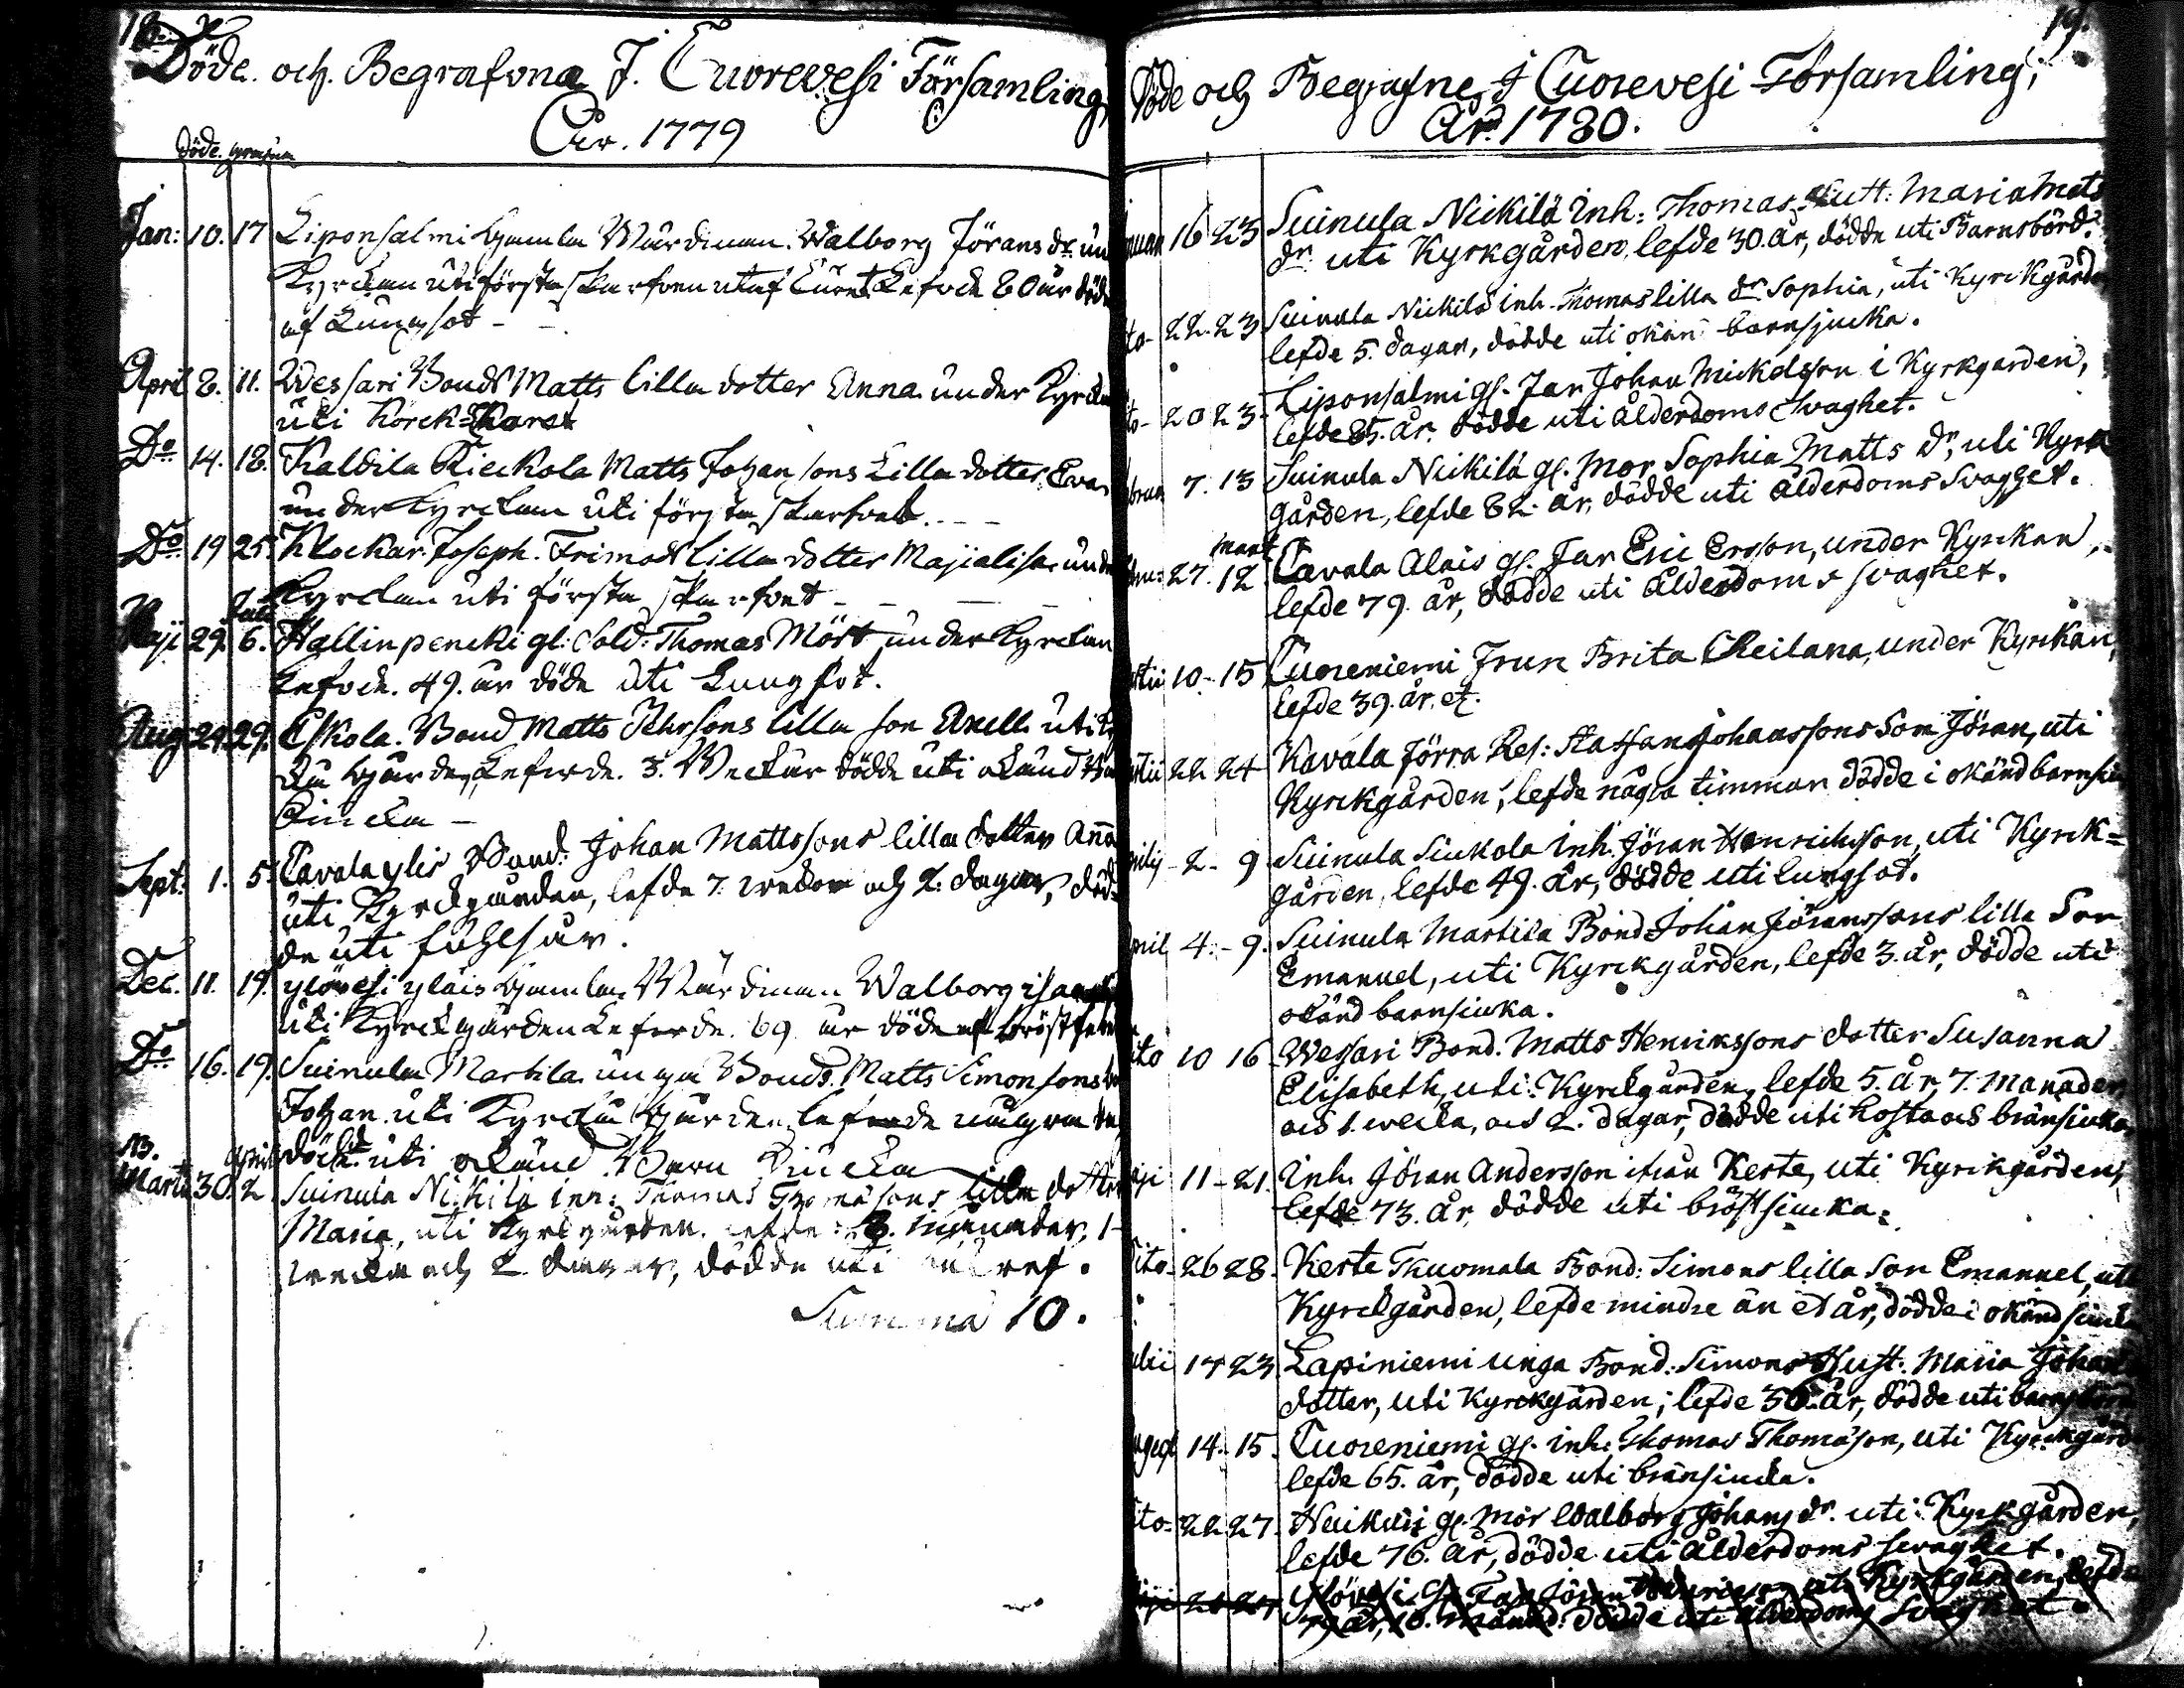 18.
Döde. och. Begrafvna J. Cuorevesi Församling,
År. 1779
döde. grafvne
Jan: 10. 17 Liponsalmi Gamla Wärdinnan. Walborg Jörans dr. un
Kyrckan uti första skarfven utaf Curet. Lefvde 80 år döde
af Lungsot -
April 8. 11. Wessari Bonds Matts lilla dotter Anna under Kyrcka
uti Körck-Karet
Do 14. 18. Kaldila Kieckola Matts Johansons Lilla dotter Eva
under Kyrckan uti första skarfvet. - -
Do 19 25. Klockar. Joseph. Frimods lilla dotter Majialisa. und
Kyrckan uti första skarfvet - - -
Maji 29. Juli 6. Hallinpencki gl: Sold: Thomas Mört under Kyrckan
Lefvde. 49. år döde uti Lungsot.
Aug: 29. 29. Eskola. Bond Matts Jehrsons lilla son Anell. uti
Gården, Lefvde. 3. Weckur dödde uti okänd
Siucka -
Sept: 1. 5. Cavala ylis Bond: Johan Mattssons lilla dotter Anna
uti Kyrckgården, lefde 7. weckor och 2. dagar, död-
de uti
Dec. 11. 19. ylövesi yläis Gamla Wärdinnan Walborg
uti Kyrckgården Lefvde. 69 år döde af bröst
Do 16. 19. Suinula Martila unga Bonds. Matts Simonsons
Johan uti Kyrcku Gården. lefvde några
död uti okänd Barn Siucka
NB.
Marti 30. April 2. Suinula Nickilä inh: Thomas Thomasons lilla dotter
Maria, uti Kyrckgården. lefde: 8. månader, 1-
wecka och 2 dagar, dödde uti
Summa 10.
19.
Döde och Begrafne J Cuorevesi Församling,
År 1780.
16 23 Suinula Nickilä inh: Thomas Hust: Maria Mats
dr. uti Kyrkgården, lefde 30. år, dödde uti Barnsbörd.
to- 22. 23. Suinula Nickilä inh. Thomas lilla dr. Sophia, uti Kyrckgårde
lefde 5. dagar, dödde uti okän barnsjucka.
to- 20 23. Liponsalmi gl. Far Johan Mickelsson i Kyrkgården,
lefde 85. år. dödde uti ålderdoms Svaghet.
bruar 7. 13 Suinula Nickilä gl. Mor Sophia Matts dr, uti Kyrk
gården, lefde 82. år, dödde uti ålderdoms Svaghet.
27. mart 12 Cavala Alais gl. Far Eric Ersson, under Kyrckan,
lefde 79. år, dödde uti Ålderdoms svaghet.
rtii 10- 15 Cuoreniemi Frun Brita Cheilana, under Kyrckan,
lefde 39. år. etc.
rtii 22 24 Kavala Jörra Res: Staffan Johanssons Son Jöran, uti
Kyrckgården, lefde några timmar dödde i okänd barnsiu
rilij- 2- 9. Suinula Siukola inh. Jöran Henrichsson, uti Kyrck=
gården, lefde 49. år, dödde uti lungsot.
pril 4.- 9. Suinula Martila Bond Johan Jöranssons lilla Son
Emanuel, uti Kyrckgården, lefde 3. år, dödde uti
okänd barnsiucka.
ito 10 16. Wessari Bond. Matts Henrikssons dotter Susanna
Elisabeth, uti. Kyrckgården, lefde 5. år, 7. Månader,
och 1. wecka, och 2. dagar, dödde uti hosta och bränsiucka
aji 11- 21. Inh. Jöran Andersson ifrån Kerte, uti Kyrckgården,
lefde 73. år, dödde uti bröstsiucka.
ito- 26 28. Kerte Thuomala Bond: Simons lilla Son Emanuel, uti
Kyrckgården, lefde mindre än et år, dödde i okänd siuck
ulii 17 23. Lapiniemi unga Bond: Simons Hust. Maria Johans
dotter, uti Kyrckgården, lefde 36. år, dödde uti barnsbörd
ugust 14. 15. Cuoreniemi gl. inh. Thomas Thomasson, uti Kyrckgård
lefde 65. år, dödde uti bränsiucka.
ito- 22 27. gl. Mor Walborg Johans dr. uti Kyrckgården,
lefde 76. år, dödde uti Ålderdoms svaghet.
Ylövesi gl. Far Jöran Henricsson uti Kyrkgården, lefde
79 år, 10. månad: dödde uti ålderdoms svaghet.